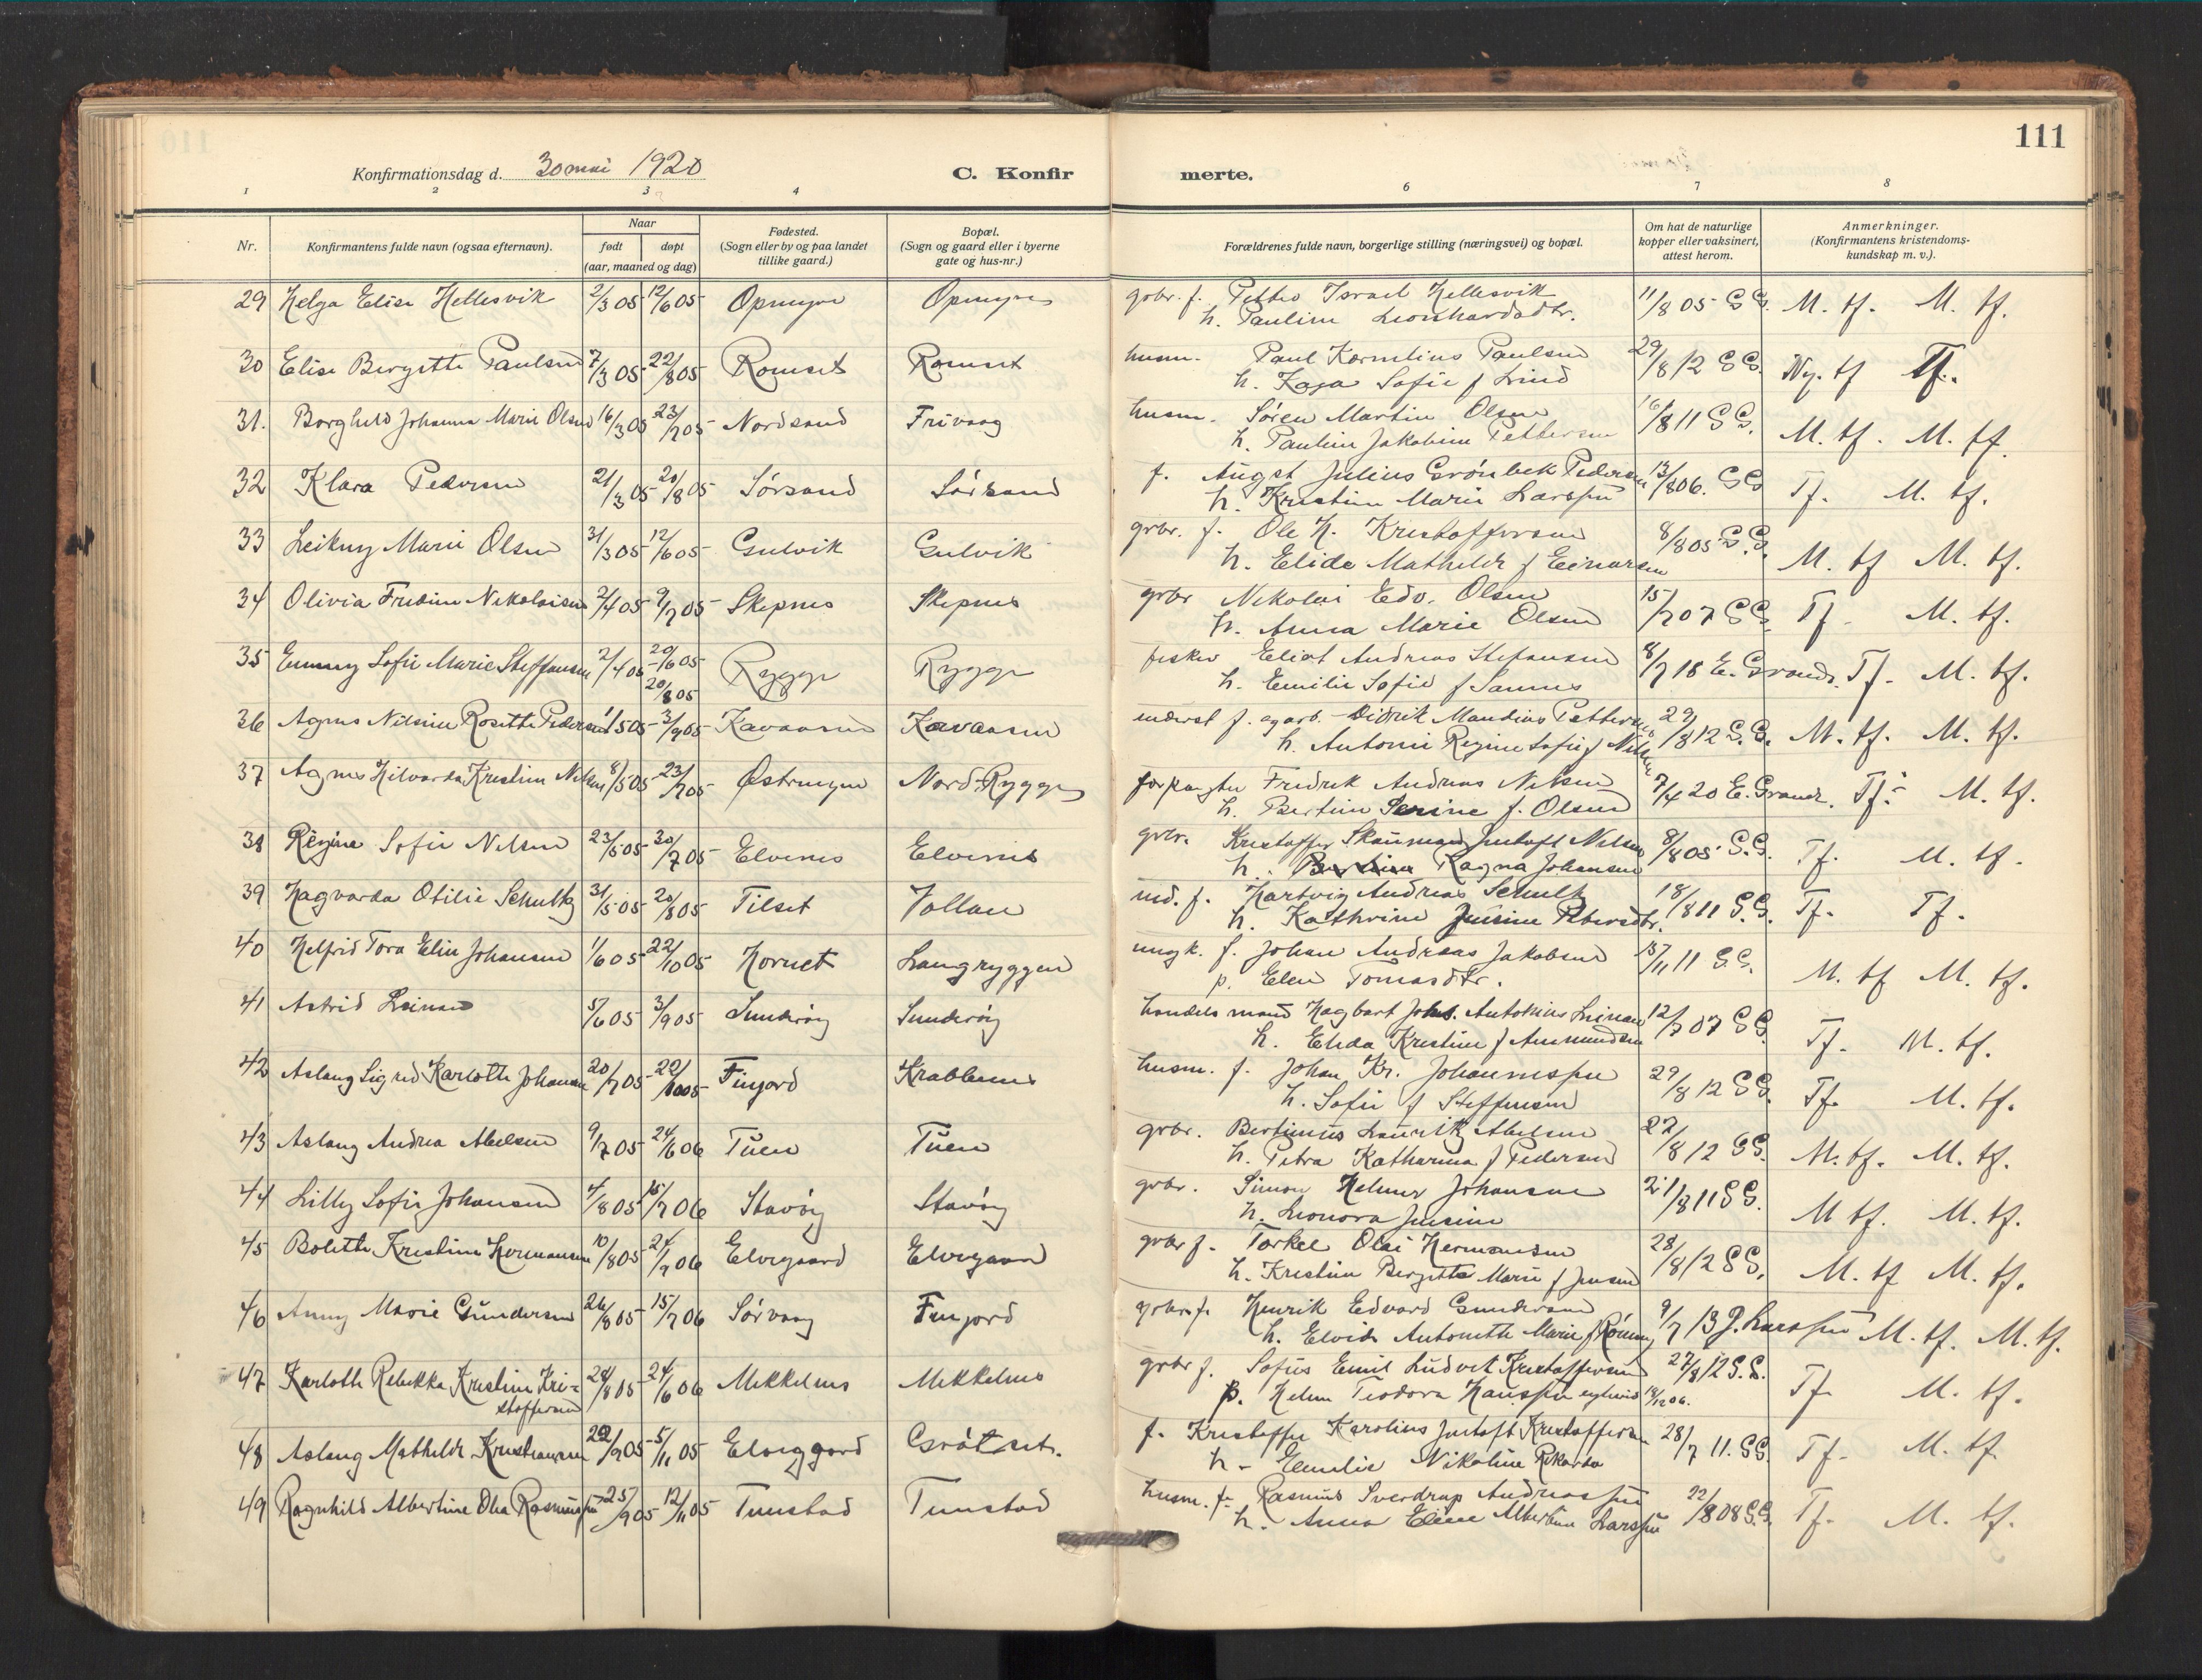 111
Konfirmationsdag d. 30 mai 1920 C. Konfir merte.
1 2 3 4 6 7 8
Nr. Konfirmantens fulde navn (ogsaa efternavn). Naar født døpt (aar, maaned og dag) Fødested. (Sogn eller by og paa landet tillike gaard.) Bopæl. (Sogn og gaard eller i byerne gate og hus-nr.) Forældrenes fulde navn, borgerlige stilling (næringsvei) og bopæl. Om hat de naturlige kopper eller vaksinert, attest herom. Anmerkninger. (Konfirmantens kristendoms-kundskap m. v.).
29 Helga Elise Hellesvik 2/3 05 12/6 05 Opmyre Opmyre gvbr. f. Petter Israel Hellesvik 11/8 05 S S. M. tf. M. tf.
h. Pauline Leonhardsdtr.
30 Elise Bergitte Paulsen 7/3 05 22/8 05 Romset Romset husm. Paul Kornelius Paulsen 29/8 12 S S. Ng. tf Tf.
h. Kaja Sofie f Lind
31. Borghild Johanna Marie Olsen 16/3 05 23/7 05 Nordsand Frivaag husm. Søren Martin Olsen 16/8 11 S S. M. tf. M. tf.
h. Pauline Jakobine Pettersen
32 Klara Pedersen 21/3 05 20/8 05 Sørsand Sørsand f. Augst Julius Grønbek Pedersen 13/8 06. S S Tf. M. tf.
h. Kristine Marie Larssen
33 Leikny Marie Olsen 31/3 05 12/6 05 Gulvik Gulvik gvbr. f. Ole H. Kristoffersen 8/8 05 S. S. M. tf M. tf.
h. Elida Mathilde f Einarsen
34 Olivia Fredine Nikolaisen 2/4 05 9/7 05 Skepnes Skepnes gvbr Nikolai Edv. Olsen 15/7 07 S S. Tf. M. tf.
h. Anna Marie Olsen
35 Emmy Sofie Marie Steffansen 2/4 05 20/6 05 Rygge Rygge fisker Eliot Andreas Stefansen 8/7 18 E. Grande. Tf. M. tf.
20/8 05 h. Emilie Sofie f Sannes
36 Agnes Nilsine Rosette Pedersen 1/5 05 3/9 05 Kavaasen Kavaasen inderst f. og arb. Didrik Mandius Pettersen 29/8 12 S. S. M. tf. M. tf.
h. Antonie Regine Sofie f Nilsen
37 Agnes Hilvarda Kristine Nilsen 8/5 05 23/7 05 Østrmyre Nord-Rygge forpagter Fredrik Andreas Nilsen 7/4 20 E. Grande. Tf. M. tf.
h. Bertine Serine f. Olsen
38 Regine Sofie Nilsen 23/5 05 30/7 05 Elvenes Elvenes gvbr. Kristoffer Skaumann Justoft Nilsen 8/8 05 S. S. Tf. M. tf.
h. Ragna Johansen
39 Hagvarda Otilie Schultz 31/5 05 20/8 05 Tilset Vollan ind. f. Hartvig Andreas Schultz 18/8 11 S. S. Tf. Tf.
h. Kathrine Jensine Petersdtr.
40 Helfrid Tora Elin Johansen 1/6 05 22/10 05 Hornet Langryggen ungk. f. Johan Andreas Jakobsen 15/11 11 S S. M. tf M. tf.
p. Elen Tomasdtr.
41 Astrid Leinan 5/6 05 3/9 05 Sunderøy Sunderøy handelsmand Hagbart Johs. Antonius Leinan 12/7 07 S S. Tf. M. tf.
h. Elida Kristine f Amundsen
42 Aslaug Sigrid Karlotte Johansen 20/7 05 22/10 05 Finjord Krabbenes husm. f. Johan Kr. Johannessen 29/8 12 S S. Tf. M. tf.
h. Sofie f Steffensen
43 Aslaug Andrea Abelsen 9/7 05 24/6 06 Tuen Tuen gvbr. Bertinus Lauritz Abelsen 27/8 12 S S. M. tf. M. tf.
h. Petra Katharina f Pedersen
44 Lilly Sofie Johansen 4/8 05 15/7 06 Stavøy Stavøy gvbr. Simon Helmer Johansen 21/8 11 S S. M tf. M. tf.
h. Leonora Jensine
45 Bolette Kristine Hermansen 10/8 05 24/7 06 Elvegaard Elvegaard gvbr f. Torkel Olai Hermansen 28/8 12 S S. M. tf M. tf.
h. Kristine Bergitte Marie f Jensen
46 Anny Marie Gundersen 26/8 05 15/7 06 Sørvaag Finjord gvbr. f. Henrik Edvard Gundersen 9/7 13 J. Larssen M. tf. M. tf.
h. Elvide Antonette Marie f Rønning
47 Karlotte Rebekka Kristine Kri= 28/8 05 24/6 06 Mikkelnes Mikkelnes gvbr f. Sofus Emil Ludvik Kristoffersen 27/8 12 S. S. Tf. M. tf.
stoffersen p. Helen Teodora Hanssen 18/12 06.
48 Aslaug Mathilde Kristiansen 22/9 05 5/11 05 Elveggard Grøtset. f. Kristoffer Karolius Justoft Kristoffersen 28/7 11. S S. Tf. M. tf.
h. Emelie Nikoline Rikarda
49 Ragnhild Albertine Olea Rasmussen 25/9 05 12/11 05 Tunstad Tunstad husm. f. Rasmus Sverdrup Andreassen 22/8 08 S. S. Tf. M. tf.
h. Anna Eline Albertine Larssen